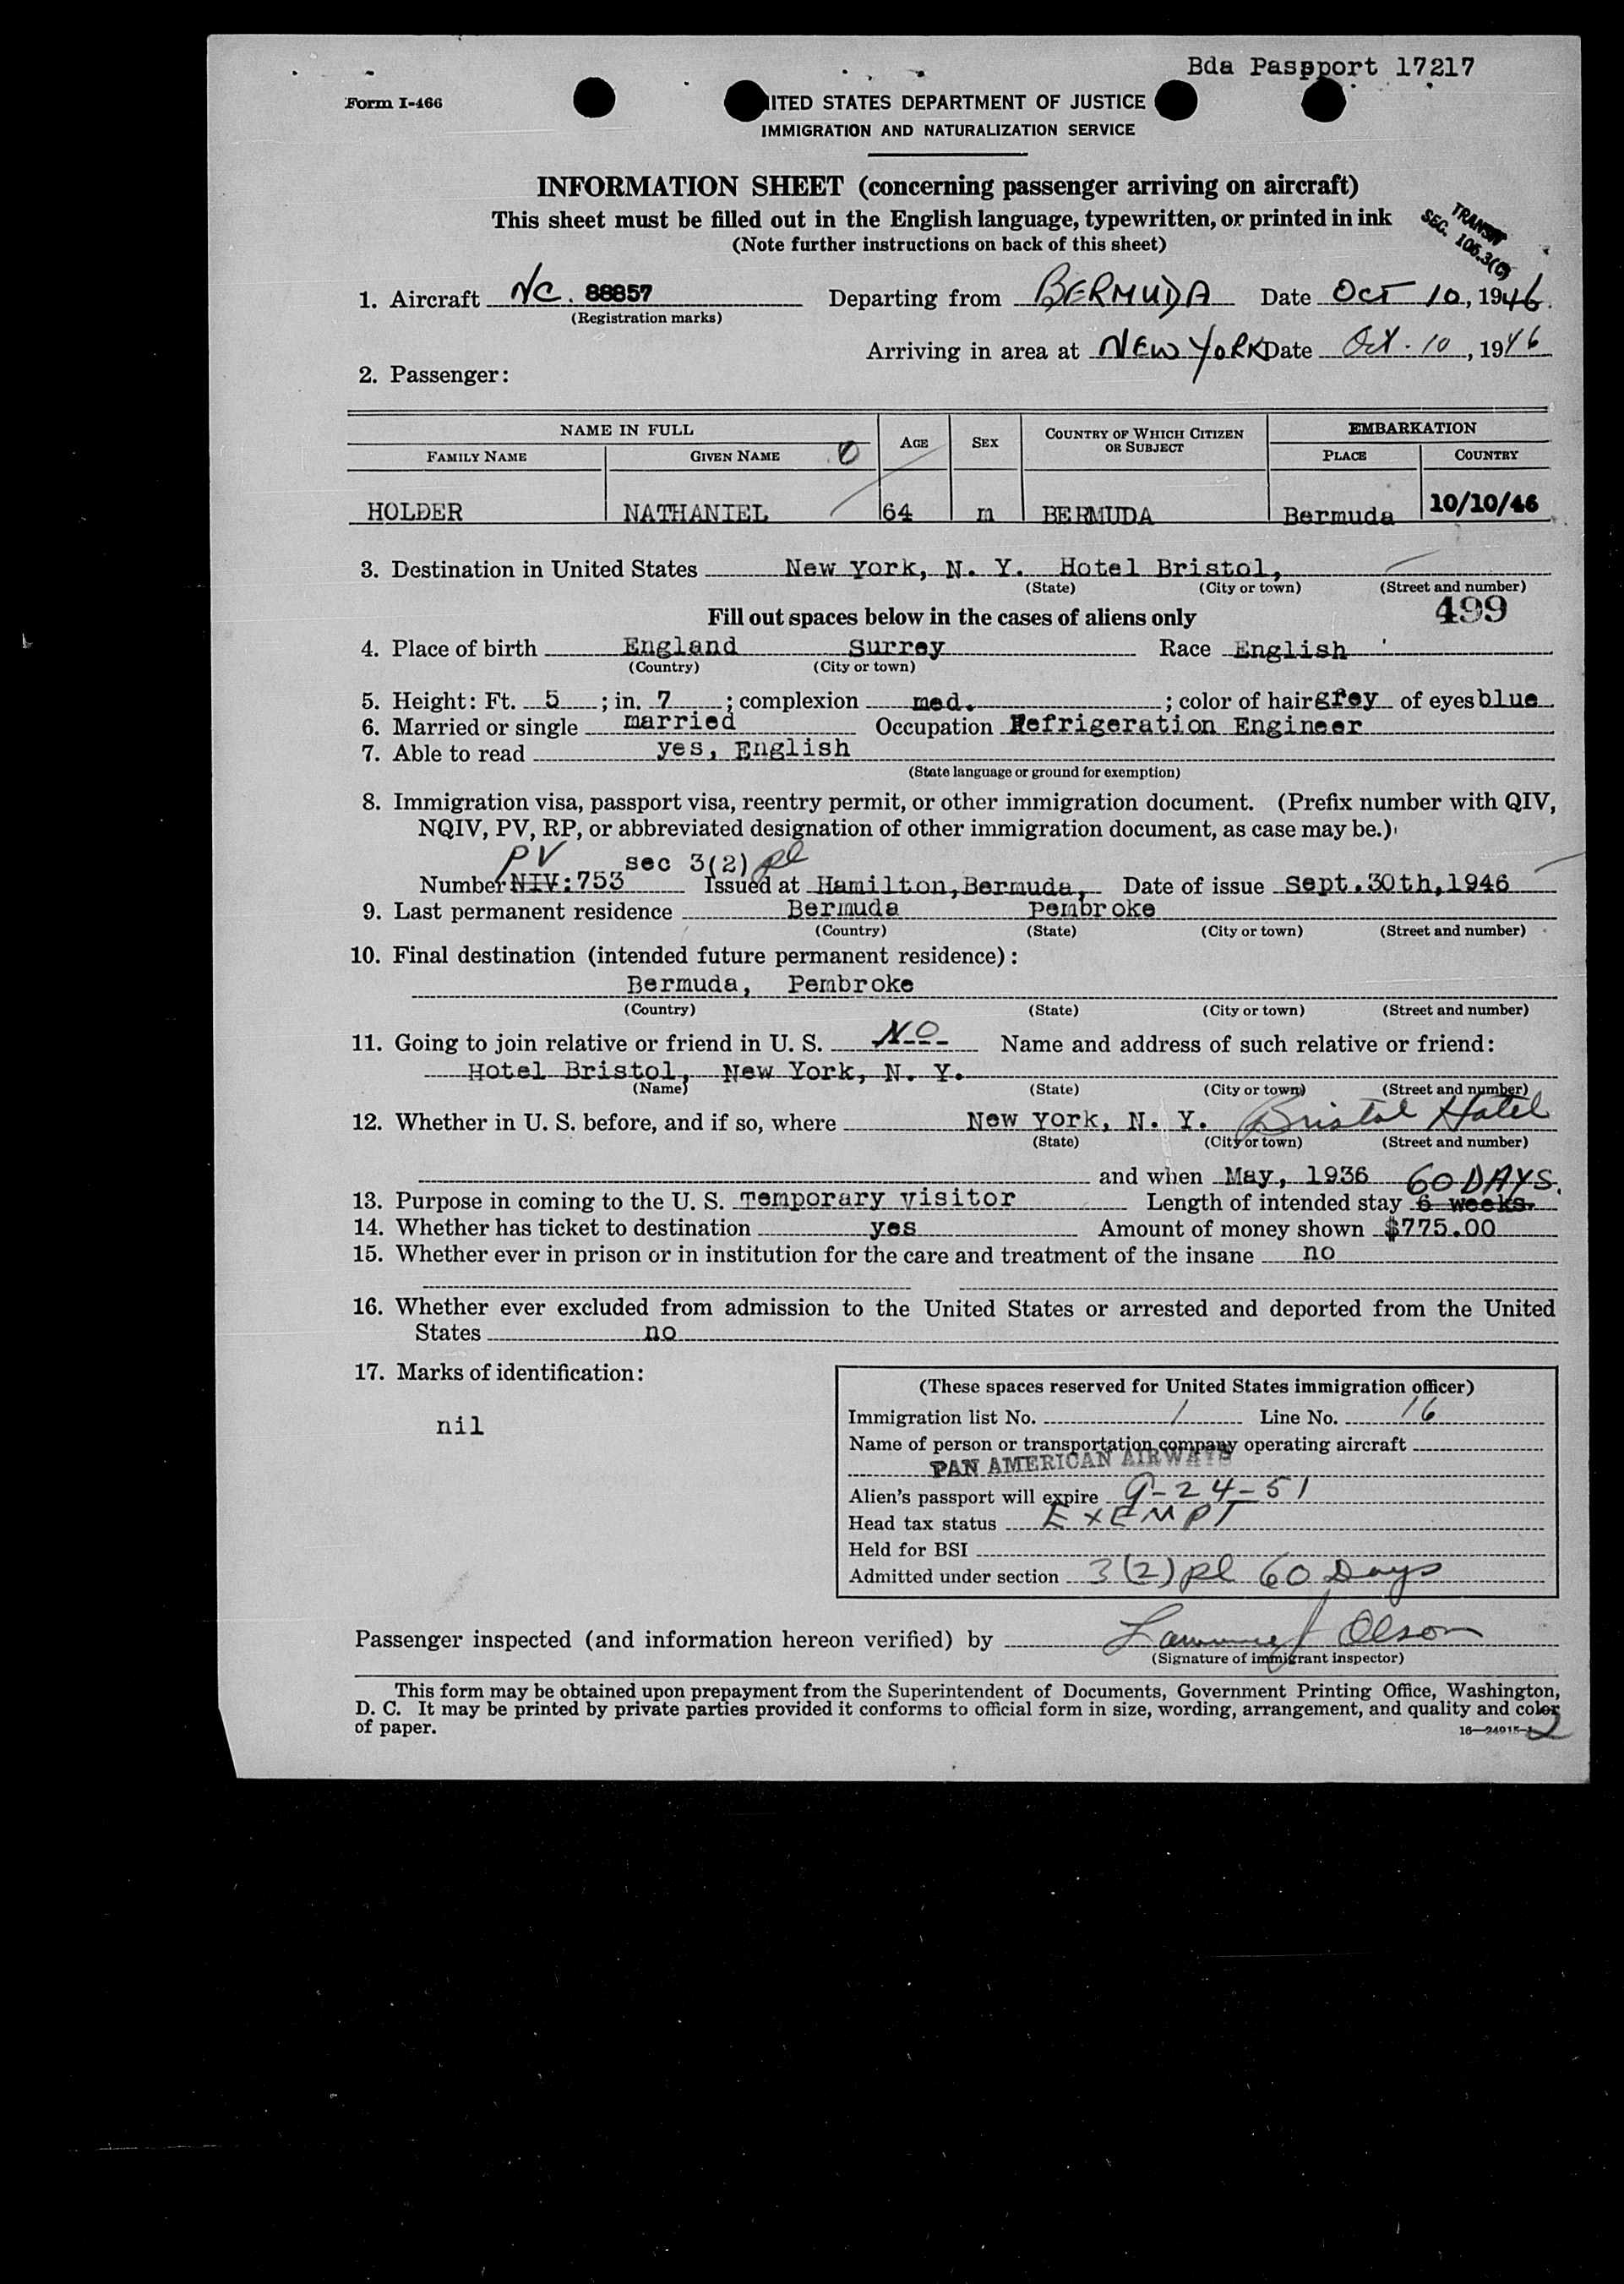 Bda Paspport 17217
Form I-466
ITED STATES DEPARTMENT OF JUSTICE
IMMIGRATION AND NATURALIZATION SERVICE
INFORMATION SHEET (concerning passenger arriving on aircraft)
This sheet must be filled out in the English language, typewritten, or printed in ink
(Note further instructions on back of this sheet)
TRANSIT
SEC. 106.3(C)
1. Aircraft NC. 88857 Departing from BERMUDA Date Oct 10, 1946.
(Registration marks)
Arriving in area at NEW YORK Date Oct. 10, 1946
2. Passenger:
NAME IN FULL AGE SEX COUNTRY OF WHICH CITIZEN OR SUBJECT EMBARKATION
FAMILY NAME GIVEN NAME PLACE COUNTRY
HOLDER NATHANIEL 64 m BERMUDA Bermuda 10/10/46
3. Destination in United States New York, N. Y. Hotel Bristol,
(State) (City or town) (Street and number)
Fill out spaces below in the cases of aliens only 499
4. Place of birth England Surrey Race English
(Country) (City or town)
5. Height: Ft. 5; in. 7; complexion med.; color of hair grey of eyes blue
6. Married or single married Occupation Refrigeration Engineer
7. Able to read yes, English
(State language or ground for exemption)
8. Immigration visa, passport visa, reentry permit, or other immigration document. (Prefix number with QIV,
NQIV, PV, RP, or abbreviated designation of other immigration document, as case may be.)
PV sec 3(2) pl
Number NIV:753 Issued at Hamilton, Bermuda, Date of issue Sept.30th,1946
9. Last permanent residence Bermuda Pembroke
(Country) (State) (City or town) (Street and number)
10. Final destination (intended future permanent residence):
Bermuda, Pembroke
(Country) (State) (City or town) (Street and number)
11. Going to join relative or friend in U. S. NO Name and address of such relative or friend:
Hotel Bristol, New York, N. Y.
(Name) (State) (City or town) (Street and number)
12. Whether in U. S. before, and if so, where New York, N. Y. Bristol Hotel
(State) (City or town) (Street and number)
and when May, 1936 60 DAYS.
13. Purpose in coming to the U. S. Temporary visitor Length of intended stay 6 weeks.
14. Whether has ticket to destination yes Amount of money shown $775.00
15. Whether ever in prison or in institution for the care and treatment of the insane no
16. Whether ever excluded from admission to the United States or arrested and deported from the United
States no
17. Marks of identification:
nil
(These spaces reserved for United States immigration officer)
Immigration list No. 1 Line No. 16
Name of person or transportation company operating aircraft
PAN AMERICAN AIRWAYS
Alien's passport will expire 9-24-51
Head tax status EXEMPT
Held for BSI
Admitted under section 3(2) pl 60 Days
Passenger inspected (and information hereon verified) by Lawrence J Olson
(Signature of immigrant inspector)
This form may be obtained upon prepayment from the Superintendent of Documents, Government Printing Office, Washington,
D. C. It may be printed by private parties provided it conforms to official form in size, wording, arrangement, and quality and color
of paper.
16—24915-1
2